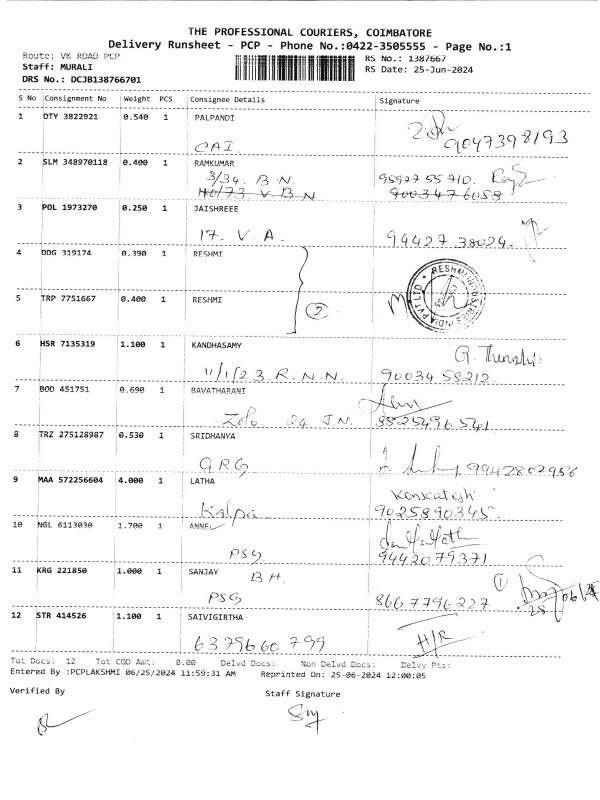 THE PROFESSIONAL COURIERS, COIMBATORE
Delivery Runsheet - PCP - Phone No.:0422-3505555 - Page No.:1
Route: VK ROAD PCP
Staff: MURALI
DRS No.: DCJB138766701
RS No.: 1387667
RS Date: 25-Jun-2024
S No Consignment No Weight PCS Consignee Details Signature
1 DTY 3822921 0.540 1 PALPANDI
CAI 9047398193
2 SLM 348970118 0.400 1 RAMKUMAR
3/34. B.N 9597755710.
110/73. V.B.N 9003476058
3 POL 1973270 0.250 1 JAISHREEE
17. V.A. 94427 38024.
4 DDG 319174 0.390 1 RESHMI
5 TRP 7751667 0.400 1 RESHMI
2
6 HSR 7135319 1.100 1 KANDHASAMY
11/1/23 R.N.N. 9003458212
7 BOD 451751 0.690 1 BAVATHARANI
Zolo 24 J.N. 8525496541
8 TRZ 275128987 0.530 1 SRIDHANYA
GRG 9942802956
9 MAA 572256604 4.000 1 LATHA
Venkatesh
Kalpa 9025890345.
10 NGL 6113030 1.700 1 ANNEL
PSG 9442079371
11 KRG 221850 1.000 1 SANJAY
B.H. 1
PSG 8667796227
12 STR 414526 1.100 1 SAIVIGIRTHA
6379660799 H/R
Tot Docs: 12 Tot COD Amt: 0.00 Delvd Docs: Non Delvd Docs: Delvy Pts:
Entered By :PCPLAKSHMI 06/25/2024 11:59:31 AM Reprinted On: 25-06-2024 12:00:05
Verified By Staff Signature